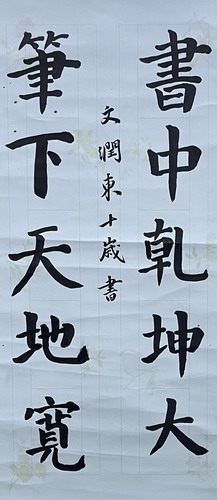 書中乾坤大
筆下天地寬
文潤東十歲書